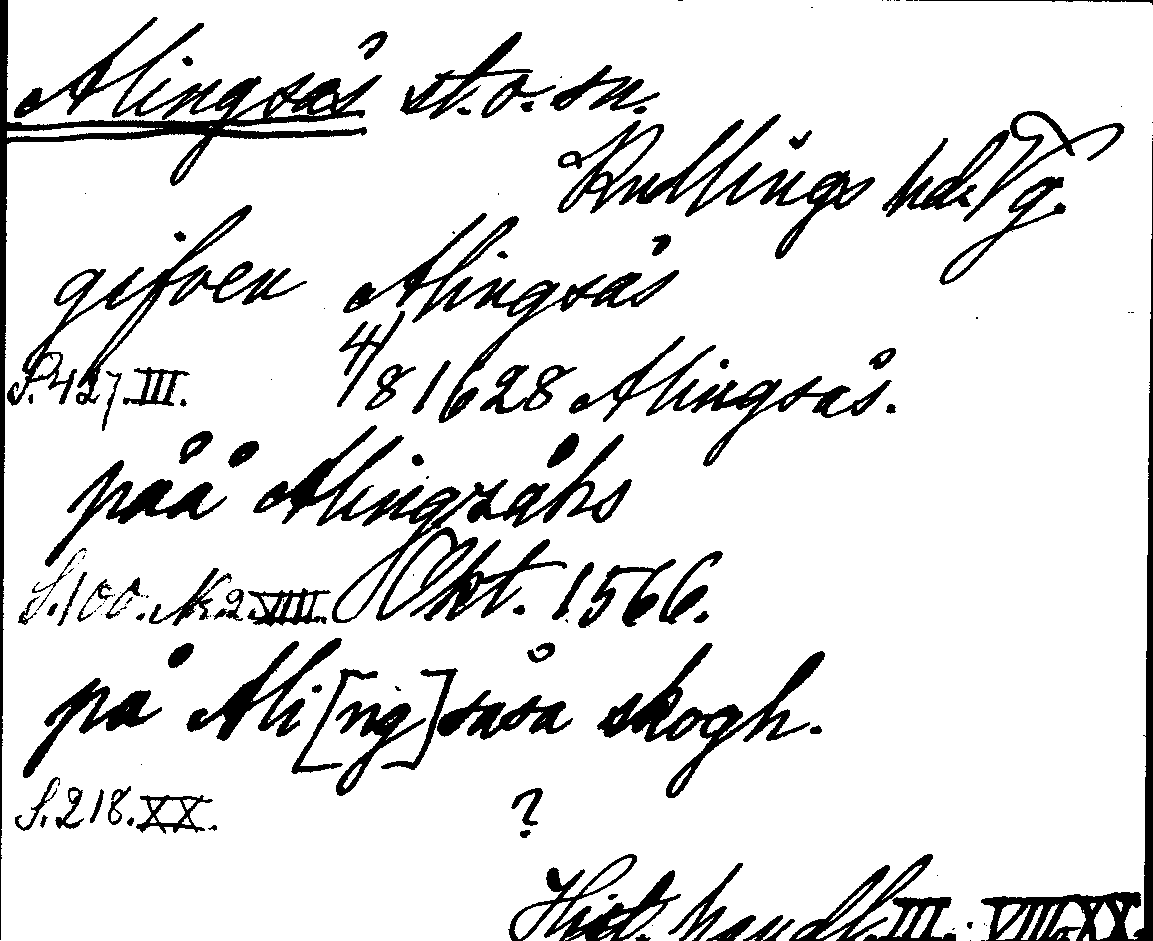 Alingsås st. o. sn.
Kullings hd. Vg.
gifven Alingsås
S. 427. III. 4/8 1628 Alingsås.
påå Alingzåhs
S. 100. N:2 VIII. Okt. 1566.
på Ali[ng]såsa skogh.
S. 218. XX. ?
Hist. handl. III. VIII. XX.